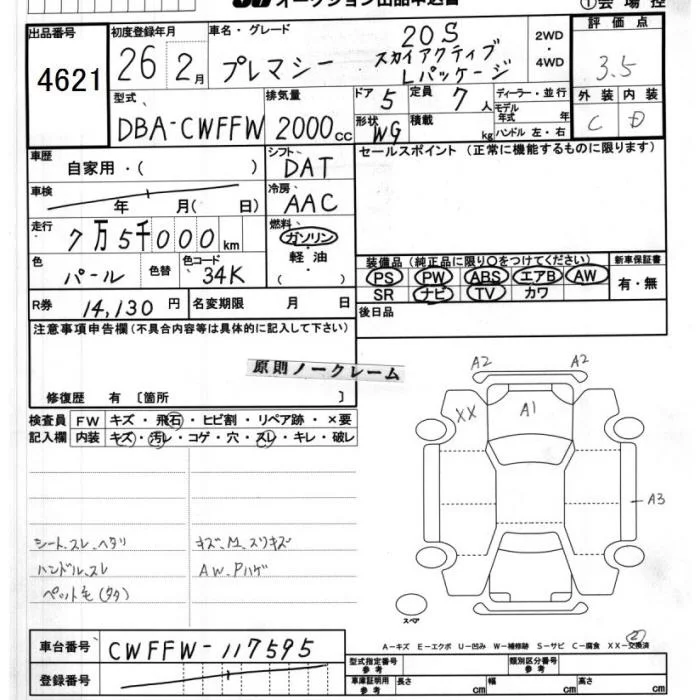 オークション出品申込書
①会場控
出品番号 4621
初度登録年月 26年 2月
車名・グレード プレマシー 20S スカイアクティブ Lパッケージ
2WD・4WD
評価点 3.5
外装 C 内装 D
型式 DBA-CWFFW
排気量 2000cc
ドア 5 形状 WG
定員 7人 積載 kg
ディーラー・並行
モデル年式 年
ハンドル 左・右
車歴 自家用・( )
シフト DAT
セールスポイント (正常に機能するものに限ります)
車検 年 月( 日)
冷房 AAC
走行 7万5千000km
燃料 ガソリン 軽油 ( )
色 パール 色替 色コード 34K
装備品 (純正品に限り○をつけてください)
PS PW ABS エアB AW
SR ナビ TV カワ
新車保証書 有・無
R券 14,130円 名変期限 月 日
後日品
注意事項申告欄(不具合内容等は具体的に記入して下さい)
原則ノークレーム
修復歴 有 [箇所 ]
検査員記入欄
FW キズ・飛石・ヒビ割・リペア跡・×要
内装 キズ・汚レ・コゲ・穴・スレ・キレ・破レ
A2 A2
XX A1
A3
シート、スレ、ヘタリ
ハンドルスレ
ペット毛(タタ)
キズ、M、スリキズ
AW、Pハゲ
スペア
車台番号 CWFFW-117595
登録番号
A-キズ E-エクボ U-凹み W-補修跡 S-サビ C-腐食 XX-交換済
②
型式指定番号 参考
類別区分番号 参考
車庫証明用 参考 長さ cm 幅 cm 高さ cm